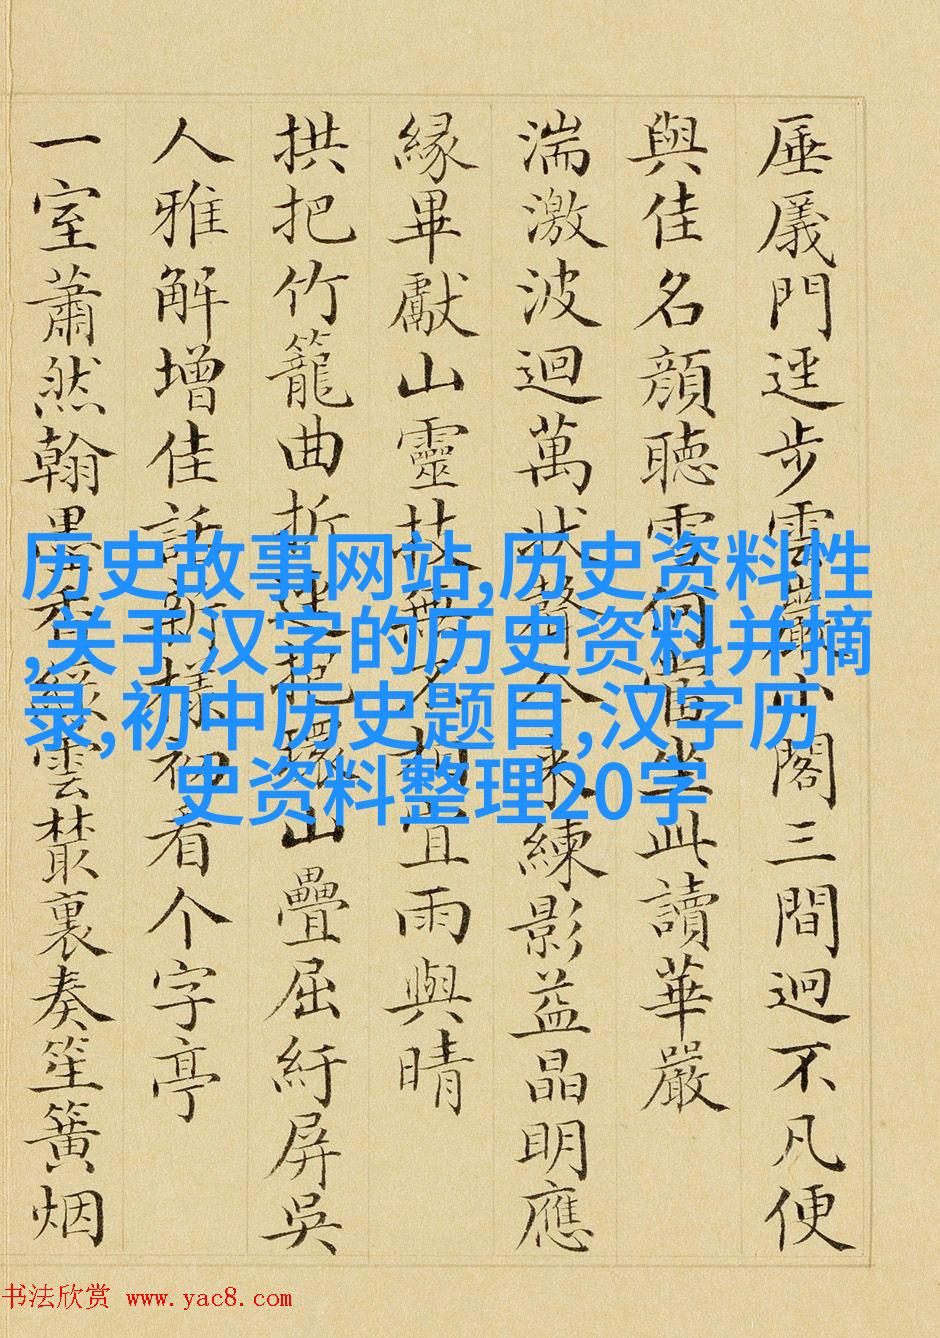 厜㕒門逕步雲巖小閣三間迥不凡便
與佳名顏聽雪何當坐此讀華嚴
湍激波迴萬狀聲練影益晶明應
緣畢獻山靈技無宜雨與晴
拱把竹籠曲折山疊屈紆屏吳
人雅解增佳話新樣看个字亭
一室蕭然翰墨香綠雲叢裏奏笙簧烟
历史故事网站,历史资料性
,关于汉字的历史资料并摘
录,初中历史题目,汉字历
史资料整理20字
书法欣赏 www.yac8.com